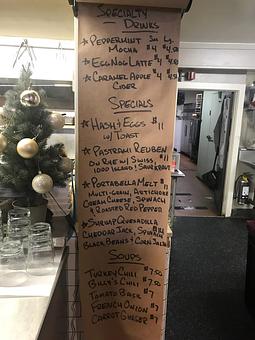 Specialty
Drinks
Sm Lg
★ Peppermint Mocha $4 $4.50
★ Eggnog Latte $4
★ Caramel Apple Cider $4
Specials
★ Hash & Eggs $11
w/ Toast
★ Pastrami Reuben $11
on Rye w/ Swiss,
1000 Island & Sauerkraut
★ Portabella Melt
Multi-grain, Artichoke
Cream Cheese, Spinach
& Roasted Red Pepper
★ Shrimp Quesadilla
Cheddar Jack, Spinach
Black Beans & Corn Salsa
Soups
Turkey Chili $7.50
Billy's Chili $7.50
Tomato Bisk $7
French Onion $7
Carrot Ginger $7